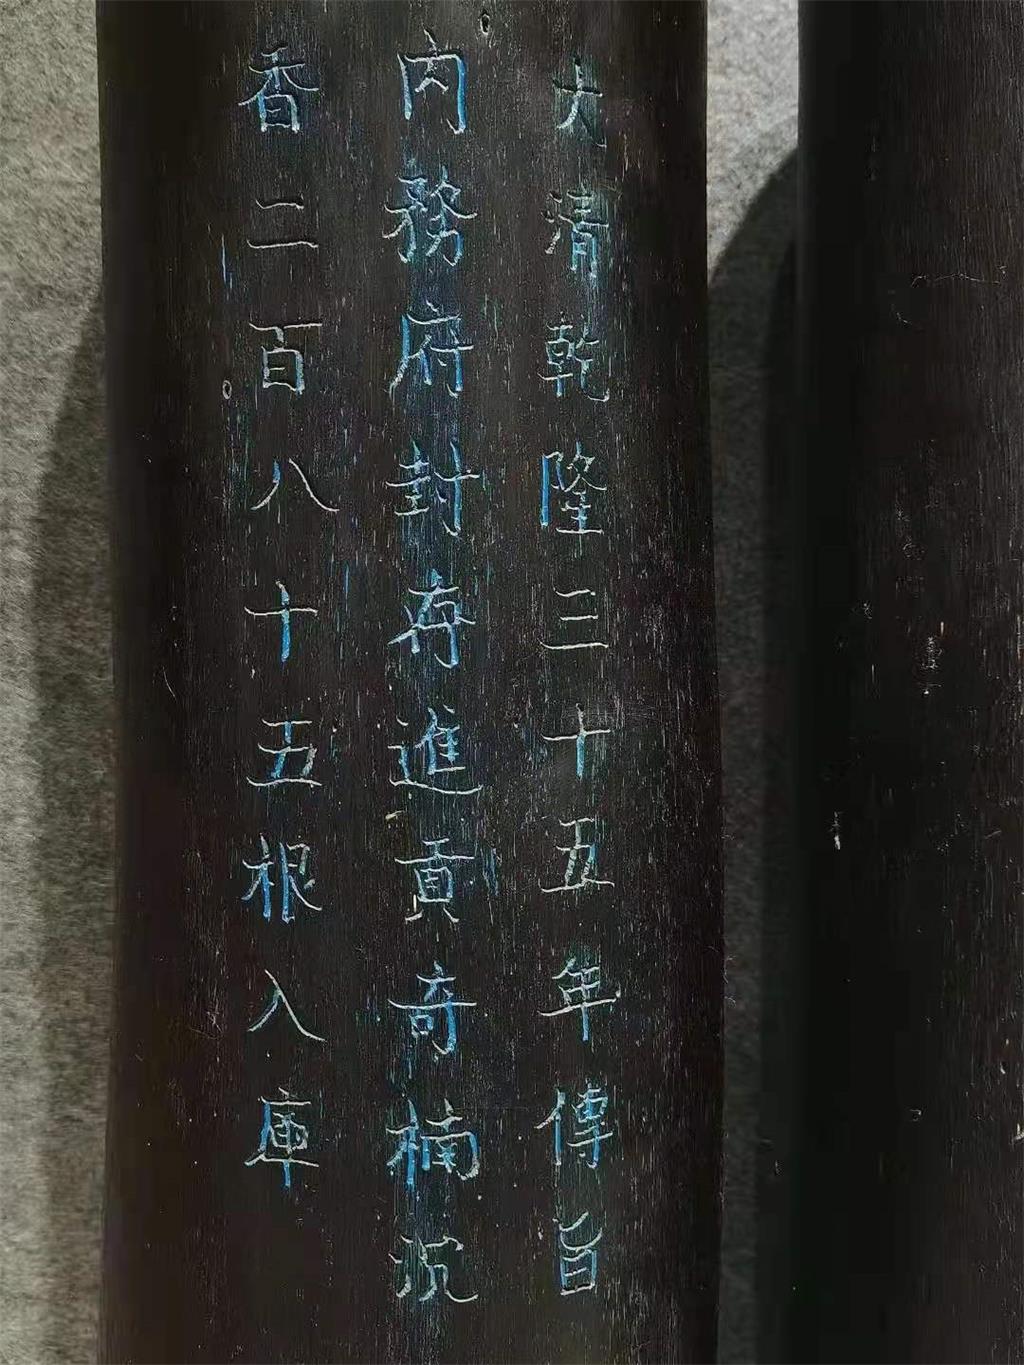 大清乾隆三十五年傳旨
內務府封存進貢奇楠沉
香二百八十五根入庫